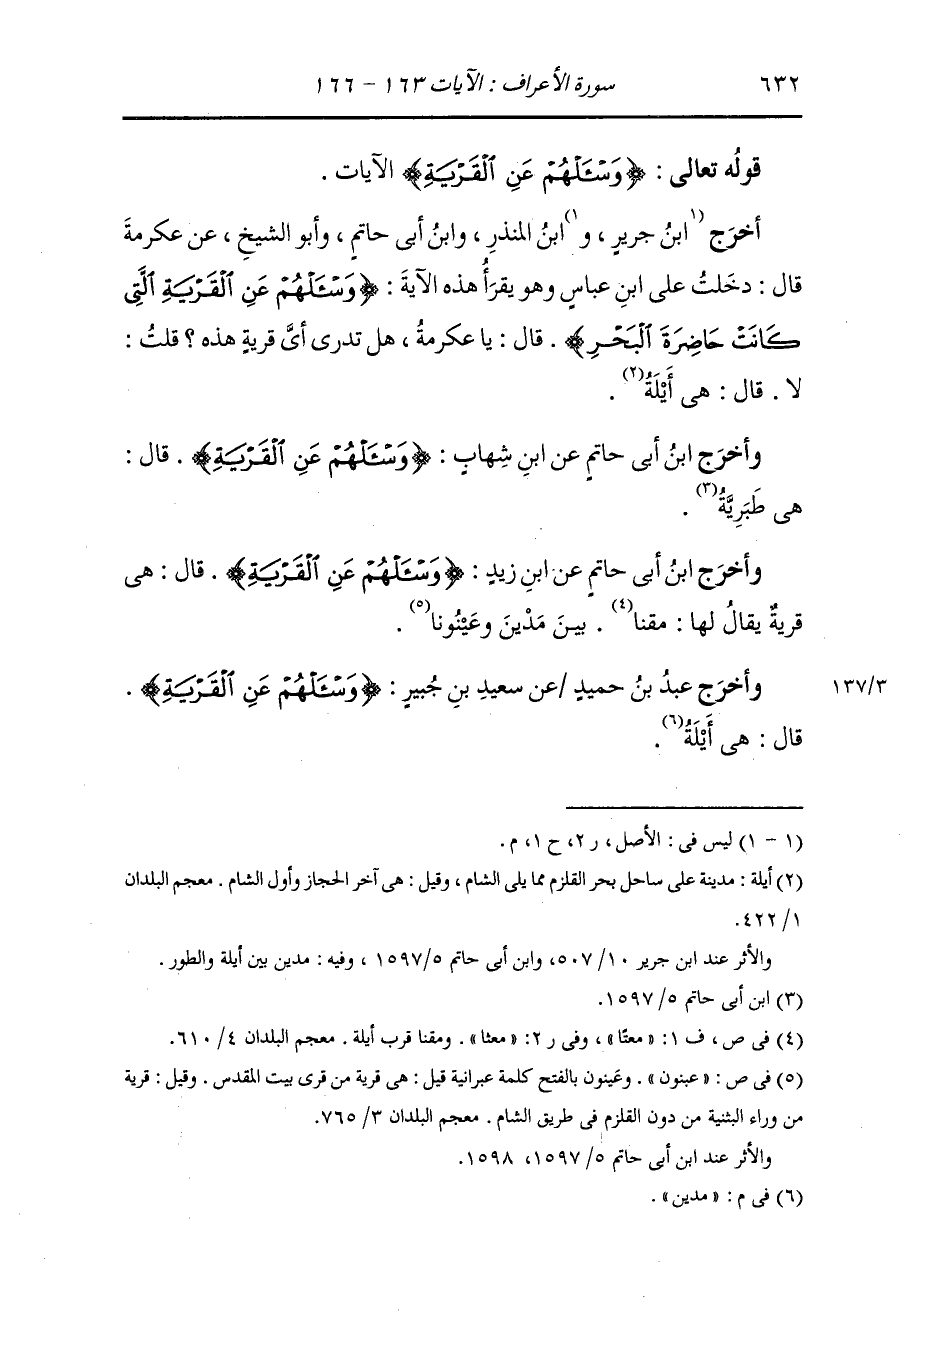 ٦٣٢ سورة الأعراف : الآيات ١٦٣ - ١٦٦
قولُه تعالى : ﴿وَسْـَٔلْهُمْ عَنِ ٱلْقَرْيَةِ﴾ الآيات .
أخرَج (١ ابنُ جريرٍ ، و١) ابنُ المنذرِ ، وابنُ أبى حاتمٍ ، وأبو الشيخِ ، عن عكرمةَ
قال : دخَلتُ على ابنِ عباسٍ وهو يقرَأُ هذه الآيةَ : ﴿وَسْـَٔلْهُمْ عَنِ ٱلْقَرْيَةِ ٱلَّتِى
كَانَتْ حَاضِرَةَ ٱلْبَحْرِ﴾ . قال : يا عكرمةُ ، هل تدرى أىَّ قريةٍ هذه ؟ قلتُ :
لا . قال : هى أَيْلَةُ(٢) .
وأخرَج ابنُ أبى حاتمٍ عن ابنِ شِهابٍ : ﴿وَسْـَٔلْهُمْ عَنِ ٱلْقَرْيَةِ﴾ . قال :
هى طَبَرِيَّةُ(٣) .
وأخرَج ابنُ أبى حاتمٍ عن ابنِ زيدٍ : ﴿وَسْـَٔلْهُمْ عَنِ ٱلْقَرْيَةِ﴾ . قال : هى
قريةٌ يقالُ لها : مقنا(٤) . بينَ مَدْينَ وعَيْنُونا(٥) .
وأخرَج عبدُ بنُ حميدٍ /عن سعيدِ بنِ جُبيرٍ : ﴿وَسْـَٔلْهُمْ عَنِ ٱلْقَرْيَةِ﴾ . ١٣٧/٣
قال : هى أَيْلَةُ(٦) .
(١ - ١) ليس فى : الأصل ، ر ٢، ح ١، م .
(٢) أيلة : مدينة على ساحل بحر القلزم مما يلى الشام ، وقيل : هى آخر الحجاز وأول الشام . معجم البلدان
١/ ٤٢٢.
والأثر عند ابن جرير ١٠/ ٥٠٧، وابن أبى حاتم ٥/ ١٥٩٧ ، وفيه : مدين بين أيلة والطور .
(٣) ابن أبى حاتم ٥/ ١٥٩٧.
(٤) فى ص ، ف ١: «معنّا» ، وفى ر ٢: «معثا» . ومقنا قرب أيلة . معجم البلدان ٤/ ٦١٠.
(٥) فى ص : «عبنون» . وعَينون بالفتح كلمة عبرانية قيل : هى قرية من قرى بيت المقدس . وقيل : قرية
من وراء البثنية من دون القلزم فى طريق الشام . معجم البلدان ٣/ ٧٦٥.
والأثر عند ابن أبى حاتم ٥/ ١٥٩٧، ١٥٩٨.
(٦) فى م : «مدين» .